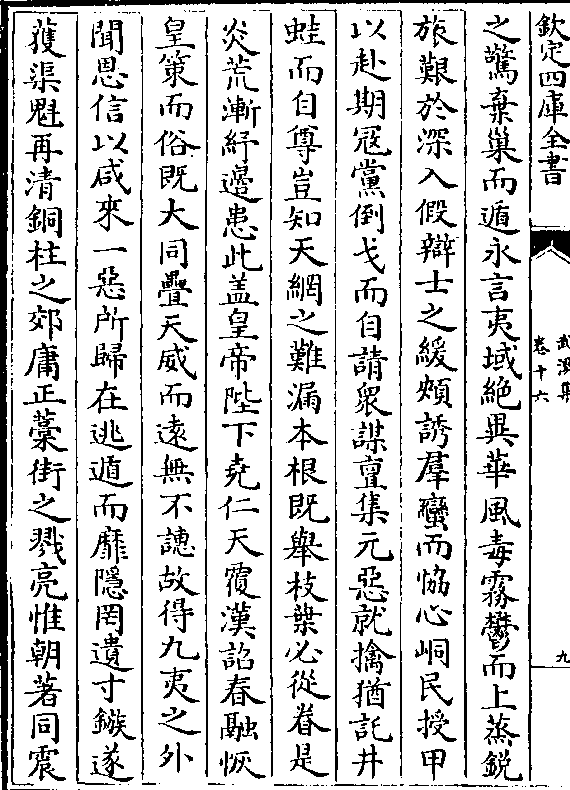 欽定四庫全書
武溪集
卷十六
九
之驚棄巢而遁永言夷域絶異華風毒霧鬱而上蒸鋭
旅艱於深入假辯士之緩頰誘羣蠻而恊心峒民授甲
以赴期冦黨倒戈而自請衆謀亶集元惡就擒猶託井
蛙而自尊豈知天網之難漏本根既舉枝葉必從眷是
炎荒漸紓邊患此盖皇帝陛下堯仁天覆漢詔春融恢
皇策而俗既大同疊天威而遠無不讋故得九夷之外
聞恩信以咸來一惡所歸在逃遁而靡隱罔遺寸鏃遂
獲渠魁再清銅柱之郊庸正藁街之戮亮惟朝著同震